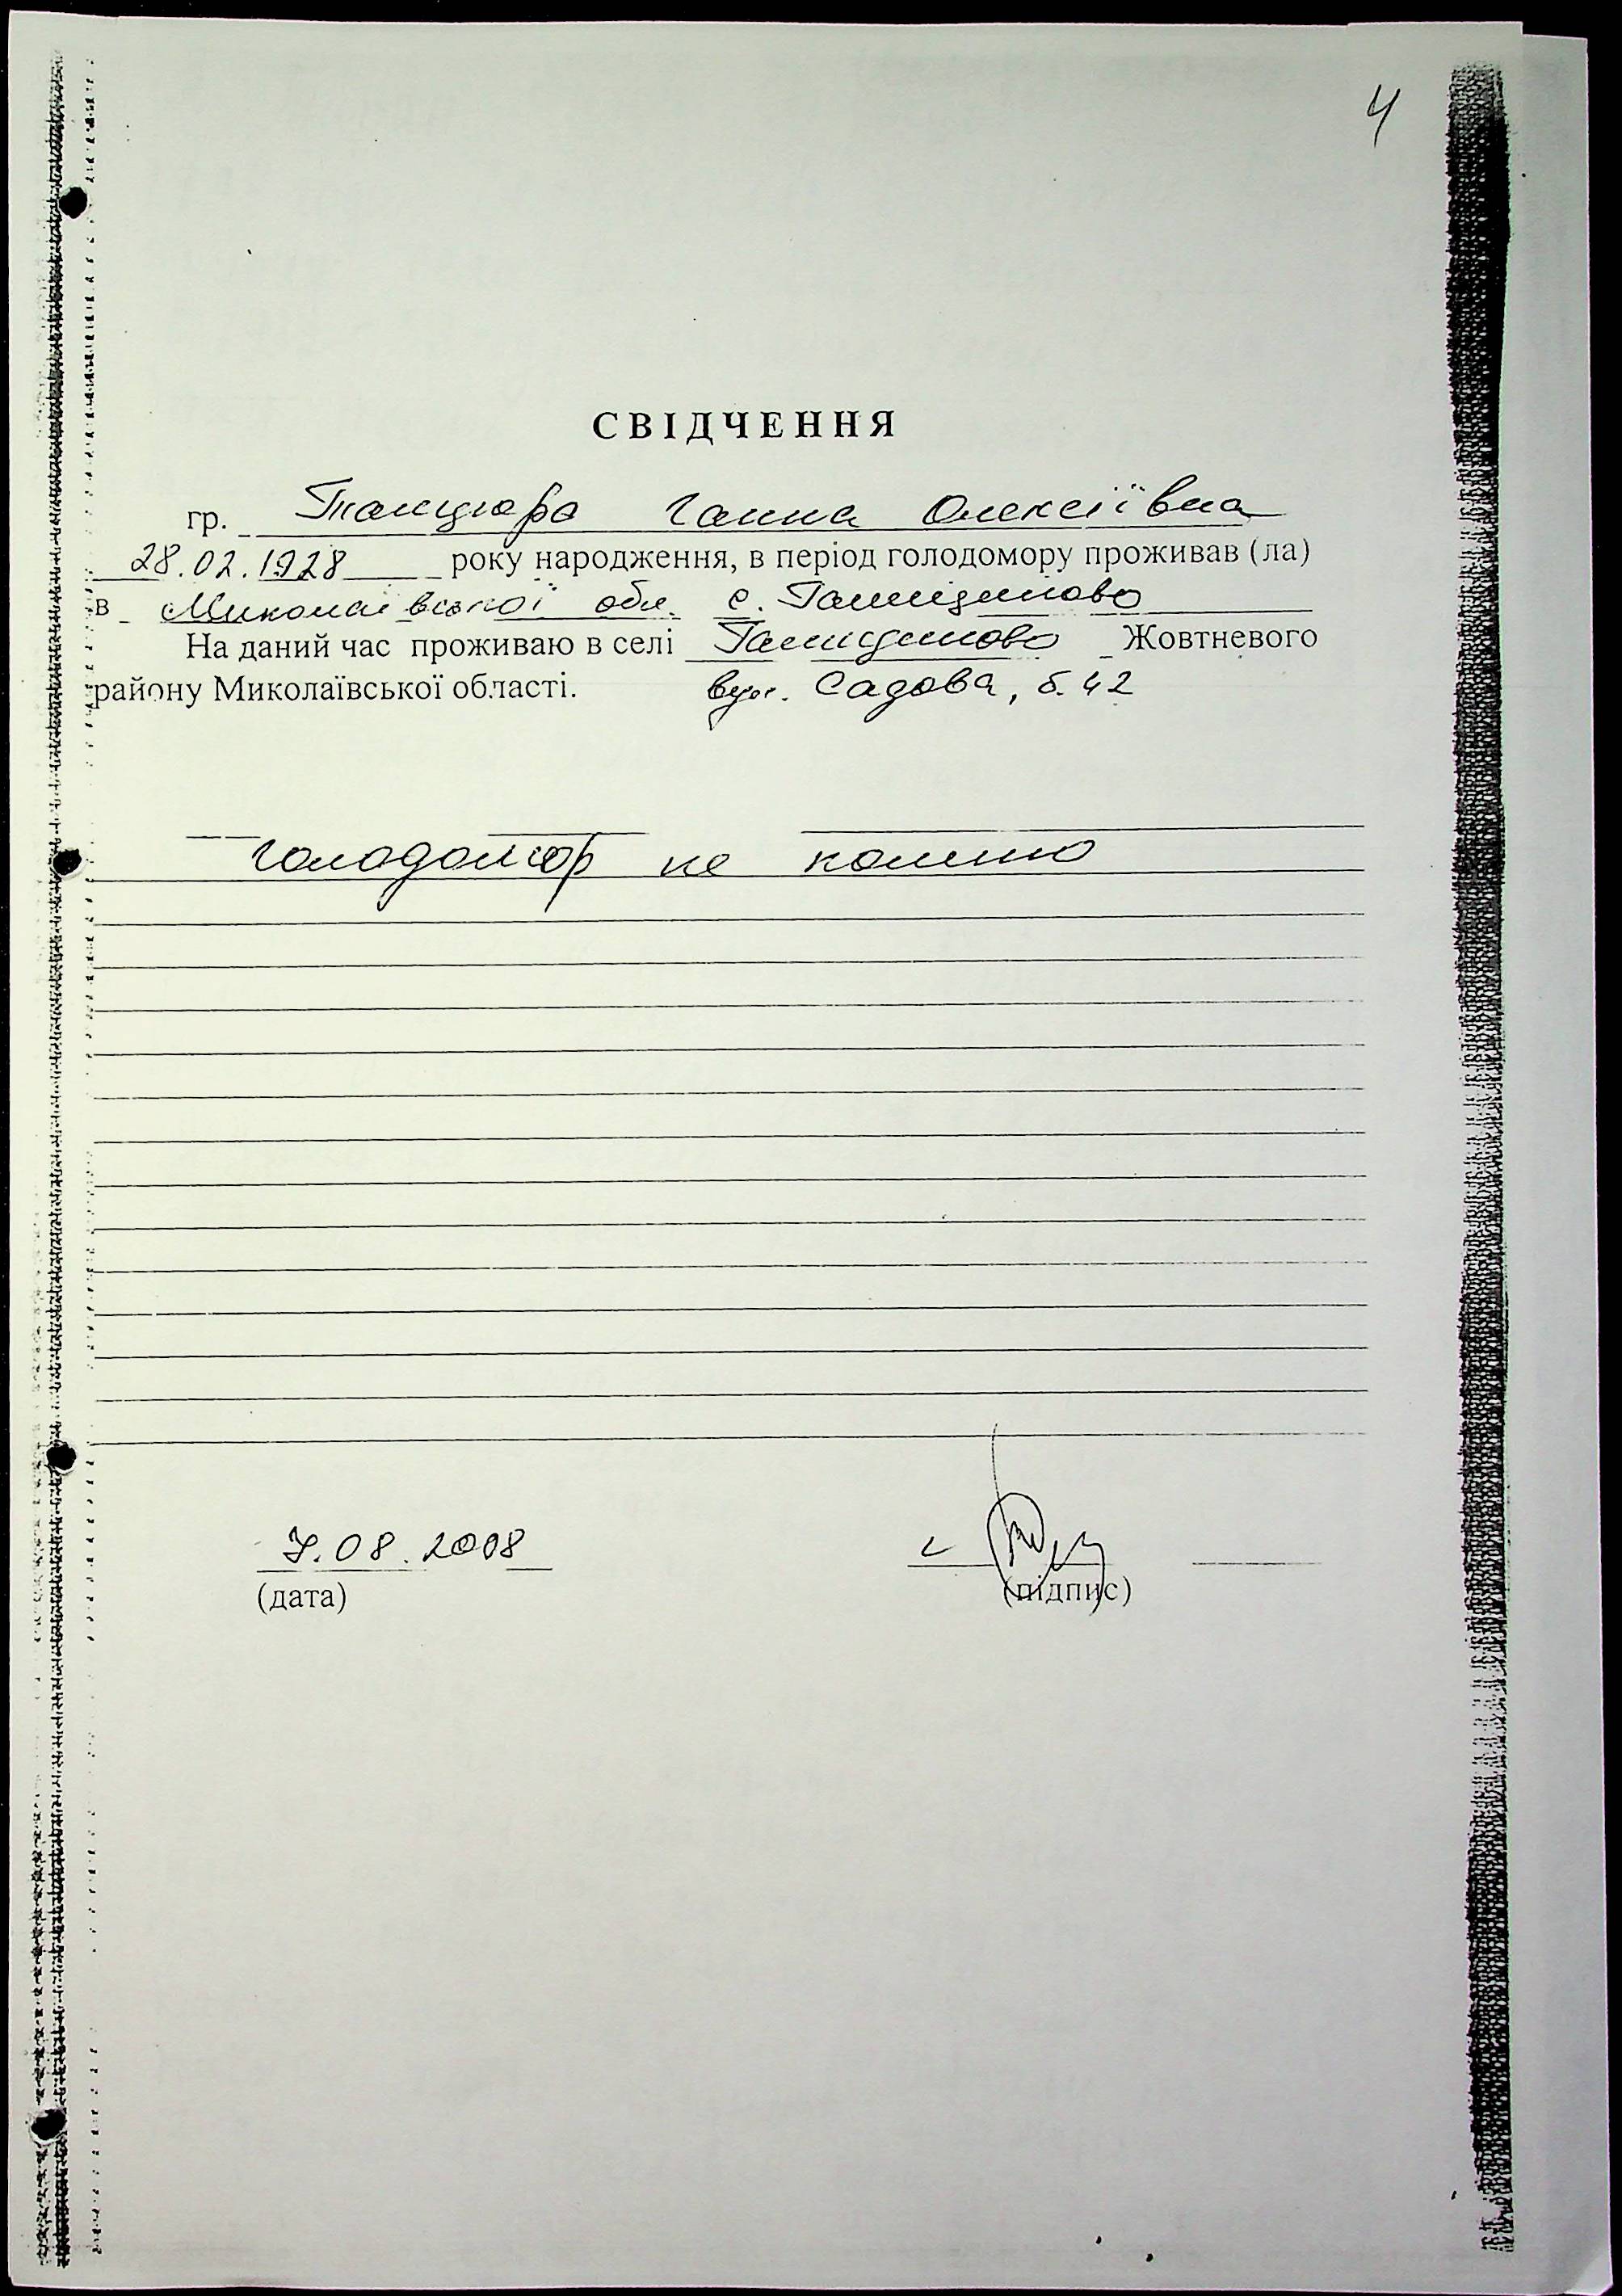 4
СВІДЧЕННЯ
гр. Танцюра Ганна Олексіївна
28.02.1928 року народження, в період голодомору проживав (ла)
в Миколаївської обл. с. Галициново
На даний час проживаю в селі Галициново Жовтневого
району Миколаївської області. вул. Садова, б. 42
голодомор не помню
7.08.2008
(дата) (підпис)